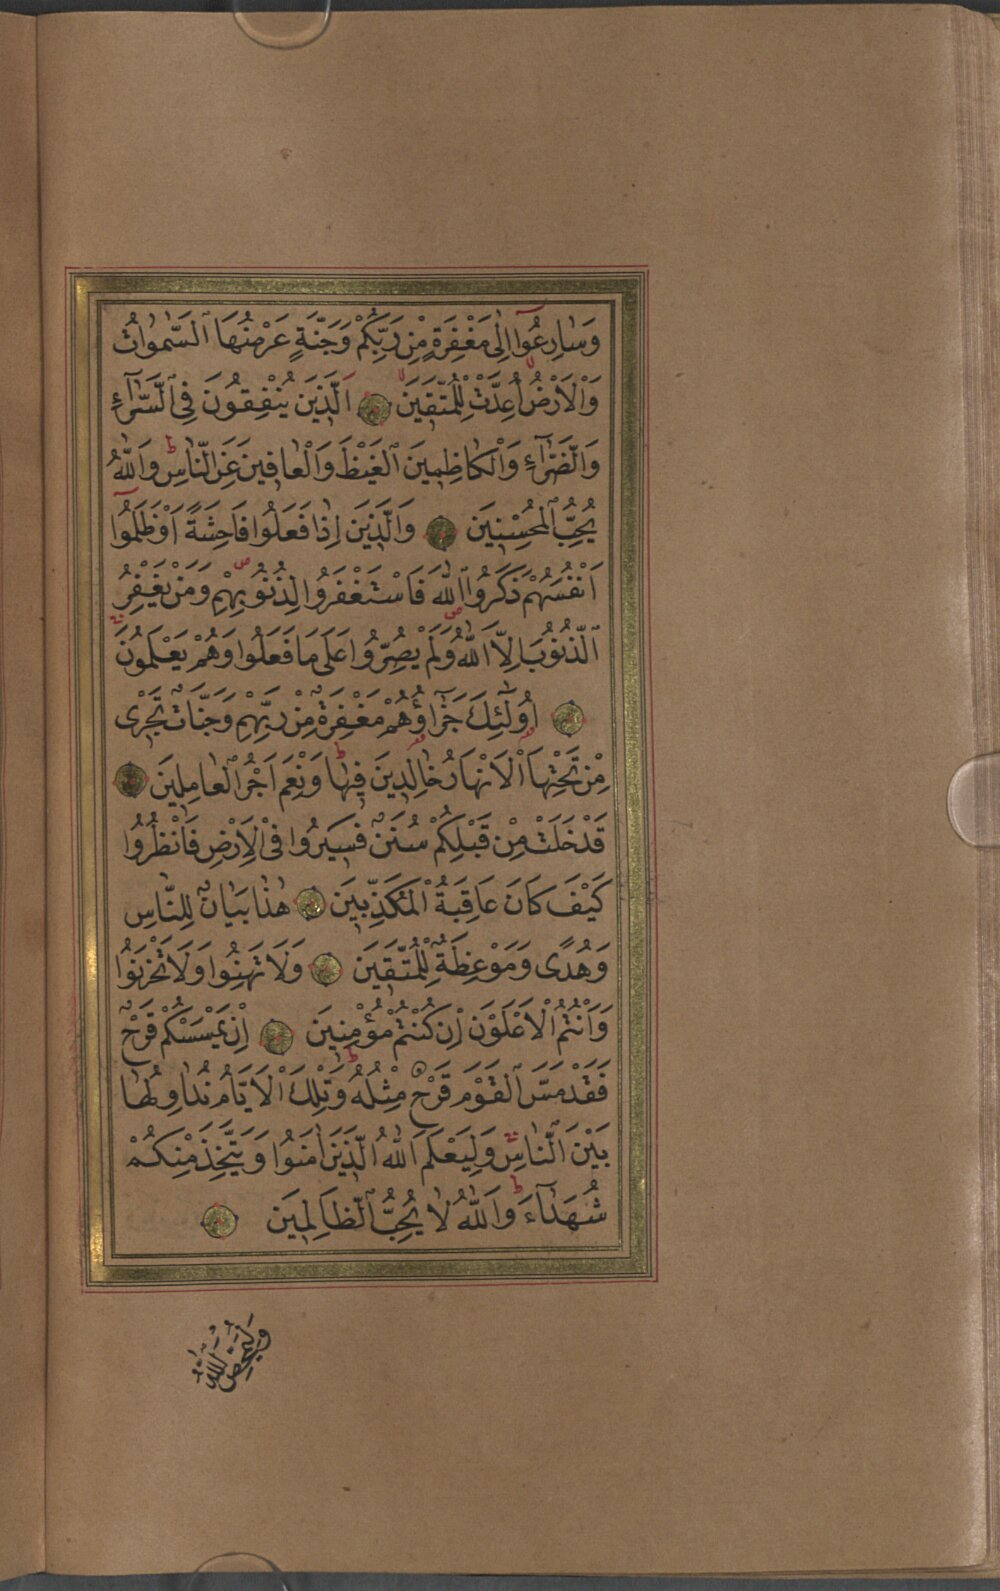 وَسَارِعُوٓا اِلٰى مَغْفِرَةٍ مِنْ رَبِّكُمْ وَجَنَّةٍ عَرْضُهَا ٱلسَّمٰوَاتُ
وَٱلْاَرْضُ اُعِدَّتْ لِلْمُتَّقِينَ اَلَّذِينَ يُنْفِقُونَ فِى ٱلسَّرَّآءِ
وَٱلضَّرَّآءِ وَٱلْكَاظِمِينَ ٱلْغَيْظَ وَٱلْعَافِينَ عَنِ ٱلنَّاسِ ط وَٱللّٰهُ
يُحِبُّ ٱلْمُحْسِنِينَ وَٱلَّذِينَ اِذَا فَعَلُوا فَاحِشَةً اَوْ ظَلَمُوٓا
اَنْفُسَهُمْ ذَكَرُوا ٱللّٰهَ فَاسْتَغْفَرُوا لِذُنُوبِهِمْ ص وَمَنْ يَغْفِرُ
ٱلذُّنُوبَ اِلَّا ٱللّٰهُ ص وَلَمْ يُصِرُّوا عَلٰى مَا فَعَلُوا وَهُمْ يَعْلَمُونَ
اُولٰٓئِكَ جَزَآؤُهُمْ مَغْفِرَةٌ مِنْ رَبِّهِمْ وَجَنَّاتٌ تَجْرٖى
مِنْ تَحْتِهَا ٱلْاَنْهَارُ خَالِدِينَ فِيهَا ط وَنِعْمَ اَجْرُ ٱلْعَامِلِينَ
قَدْ خَلَتْ مِنْ قَبْلِكُمْ سُنَنٌ فَسِيرُوا فِى ٱلْاَرْضِ فَانْظُرُوا
كَيْفَ كَانَ عَاقِبَةُ ٱلْمُكَذِّبِينَ هٰذَا بَيَانٌ لِلنَّاسِ
وَهُدًى وَمَوْعِظَةٌ لِلْمُتَّقِينَ وَلَا تَهِنُوا وَلَا تَحْزَنُوا
وَاَنْتُمُ ٱلْاَعْلَوْنَ اِنْ كُنْتُمْ مُؤْمِنِينَ اِنْ يَمْسَسْكُمْ قَرْحٌ
فَقَدْ مَسَّ ٱلْقَوْمَ قَرْحٌ مِثْلُهُ ط وَتِلْكَ ٱلْاَيَّامُ نُدَاوِلُهَا
بَيْنَ ٱلنَّاسِ وَلِيَعْلَمَ ٱللّٰهُ ٱلَّذِينَ اٰمَنُوا وَيَتَّخِذَ مِنْكُمْ
شُهَدَآءَ ط وَٱللّٰهُ لَا يُحِبُّ ٱلظَّالِمِينَ
وَلِيُمَحِّصَ ٱللّٰهُ